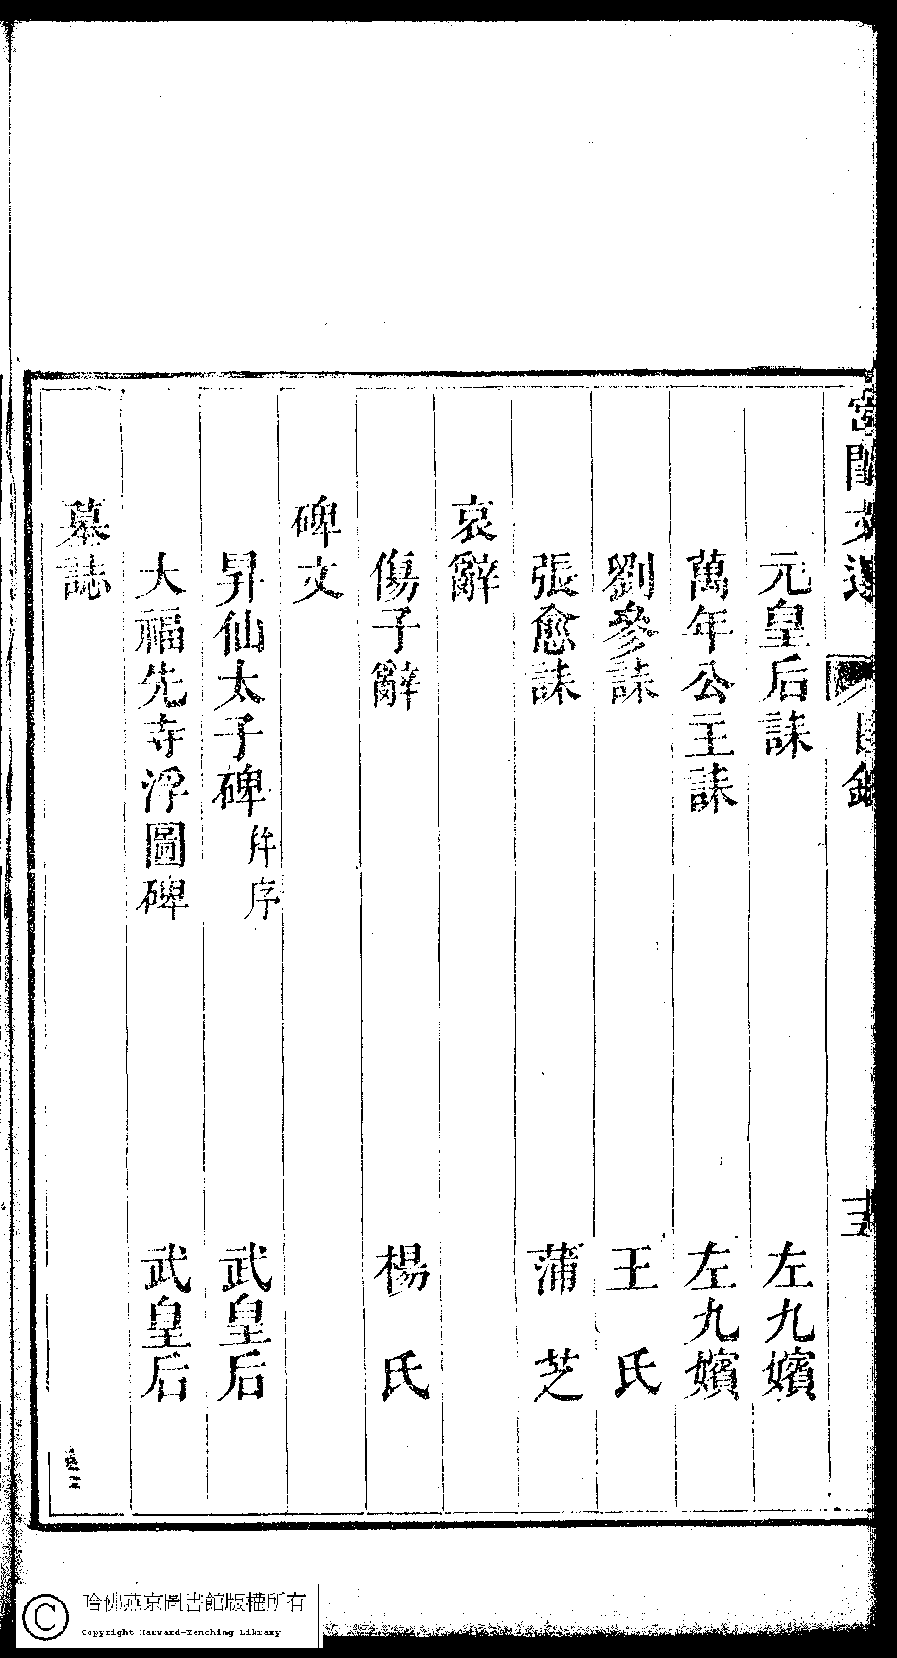 宮閨文選 目錄 十五
元皇后誄 左九嬪
萬年公主誄 左九嬪
劉參誄 王氏
張愈誄 蒲芝
哀辭
傷子辭 楊氏
碑文
昇仙太子碑 并序 武皇后
大福先寺浮圖碑 武皇后
墓誌
哈佛燕京圖書館版權所有
Copyright Harvard-Yenching Library